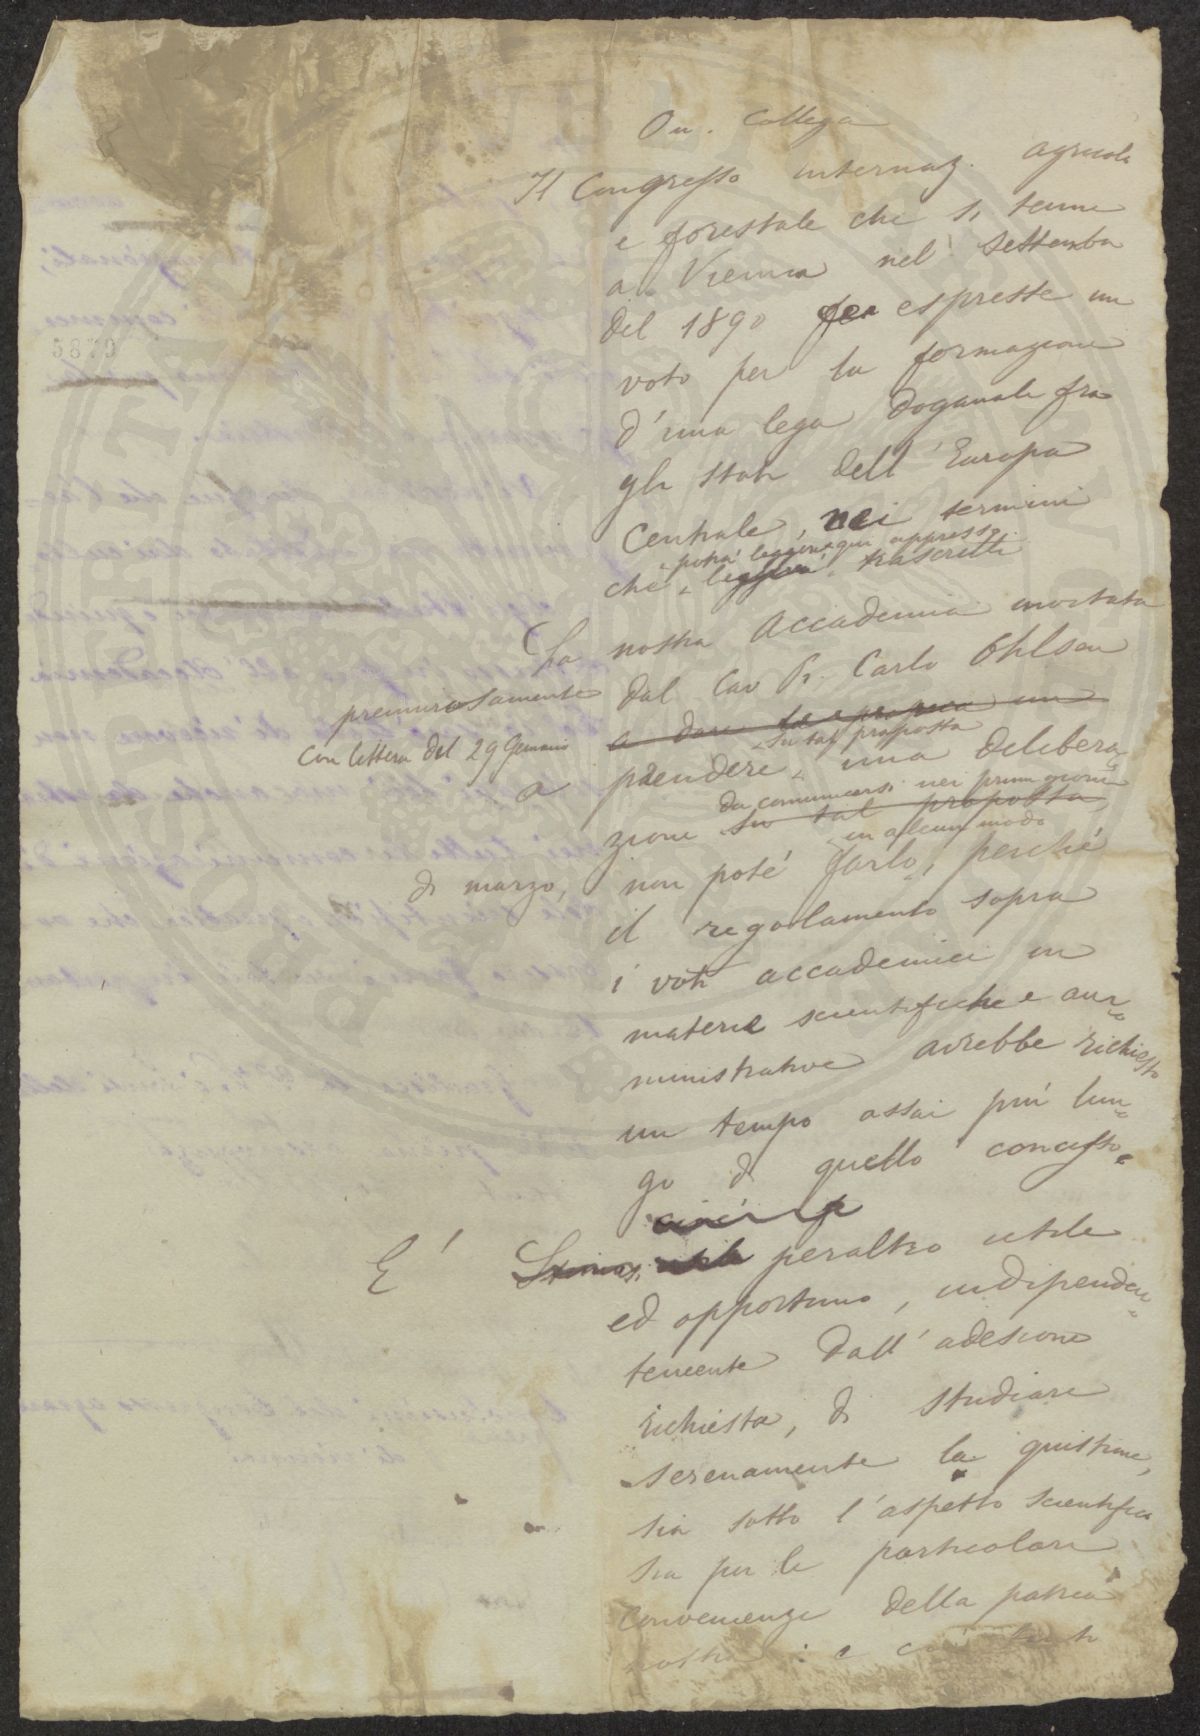 On. Collega
Il Congresso internaz. agricolo
e forestale che si tenne
a Vienna nel settembre
del 1890 fea espresse un
voto per la formazione
d'una lega doganale fra
gli stati dell'Europa
Centrale, nei termini
potrà leggere qui appresso
che leggerà trascritti
La nostra Accademia invitata
premurosamente dal Cav Pr. Carlo Ohlsen
con lettera del 29 Gennaio a dare un
su tal proposta
a prendere una delibera-
da comunicarsi nei primi giorni
zione su tal proposta
in alcun modo
di marzo, non poté farlo, perché
il regolamento sopra
i voti accademici in
materie scientifiche e am-
ministrative avrebbe richiesto
un tempo assai più lun-
go di quello concesso.
È peraltro utile
ed opportuno, indipenden-
temente dall'adesione
richiesta, di studiare
serenamente la quistione,
sia sotto l'aspetto scientifico
sia per le particolari
convenienze della patria
nostra: e
5879